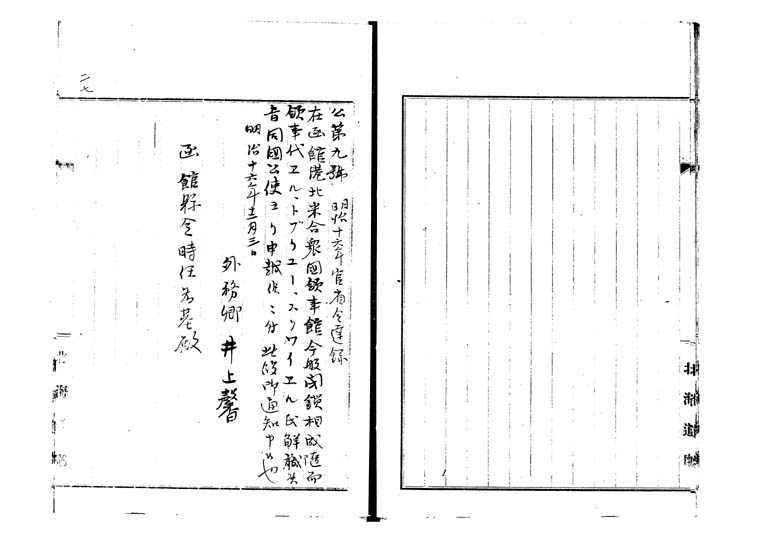 公第九號 明治十六年官省令達録
在函館港北米合衆國領事館今般閉鎖相成随而
領事代エル、トブリユー、スクワイエル氏解職
旨同國公使ヨリ申越候ニ付此段御通知申候也
明治十六年十二月三日
外務卿 井上馨
函館縣令時任為基殿
二七
北海道